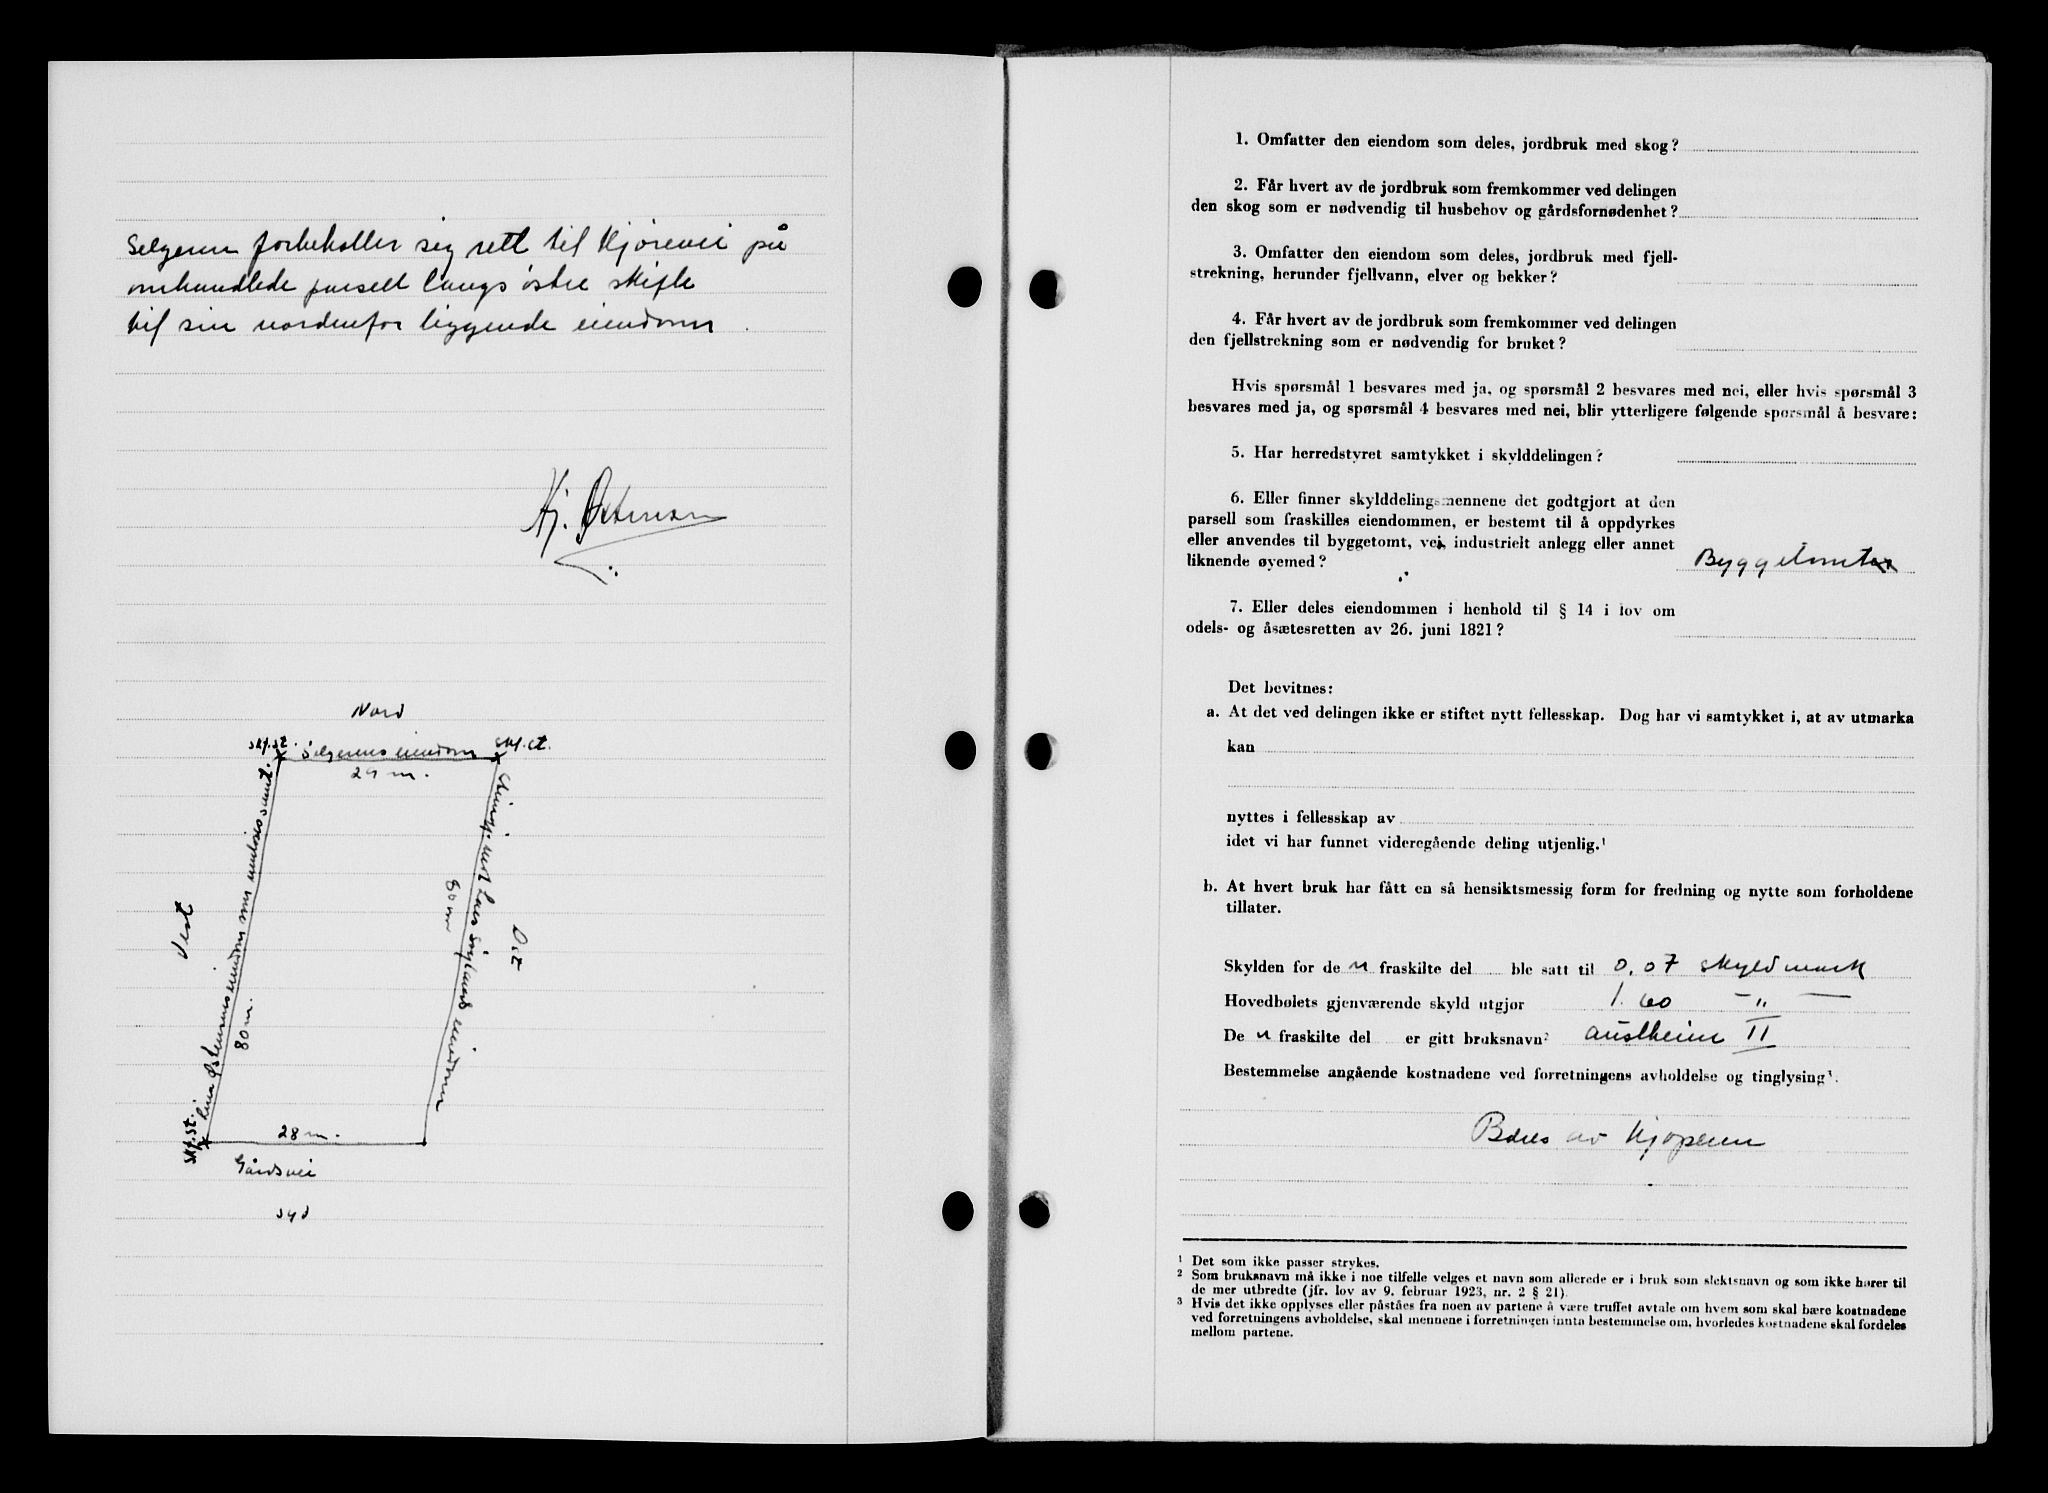 Selgeren forbeholler sig rett til kjörevei på
omhandlede parsell langs östre skifte
til sin nordenfor liggende eiendom.
Kj. Østensen
Nord
skf.st. Selgerens eiendom skf.st.
29 m.
Vest
80 m.
80 m
Öst
skf.st.
28 m.
Gårdsvei
syd
1. Omfatter den eiendom som deles, jordbruk med skog?
2. Får hvert av de jordbruk som fremkommer ved delingen
den skog som er nødvendig til husbehov og gårdsfornødenhet?
3. Omfatter den eiendom som deles, jordbruk med fjell-
strekning, herunder fjellvann, elver og bekker?
4. Får hvert av de jordbruk som fremkommer ved delingen
den fjellstrekning som er nødvendig for bruket?
Hvis spørsmål 1 besvares med ja, og spørsmål 2 besvares med nei, eller hvis spørsmål 3
besvares med ja, og spørsmål 4 besvares med nei, blir ytterligere følgende spørsmål å besvare:
5. Har herredstyret samtykket i skylddelingen?
6. Eller finner skylddelingsmennene det godtgjort at den
parsell som fraskilles eiendommen, er bestemt til å oppdyrkes
eller anvendes til byggetomt, vei, industrielt anlegg eller annet
liknende øyemed? Byggetomt
7. Eller deles eiendommen i henhold til § 14 i lov om
odels- og åsætesretten av 26. juni 1821?
Det bevitnes:
a. At det ved delingen ikke er stiftet nytt fellesskap. Dog har vi samtykket i, at av utmarka
kan
nyttes i fellesskap av
idet vi har funnet videregående deling utjenlig.¹
b. At hvert bruk har fått en så hensiktsmessig form for fredning og nytte som forholdene
tillater.
Skylden for de n fraskilte del ble satt til 0,07 skyldmark
Hovedbølets gjenværende skyld utgjør 1.60 — „ —
De n fraskilte del er gitt bruksnavn² Austheim II
Bestemmelse angående kostnadene ved forretningens avholdelse og tinglysing³.
Bæres av kjöperen
¹ Det som ikke passer strykes.
² Som bruksnavn må ikke i noe tilfelle velges et navn som allerede er i bruk som slektsnavn og som ikke hører til
de mer utbredte (jfr. lov av 9. februar 1923, nr. 2 § 21).
³ Hvis det ikke opplyses eller påståes fra noen av partene å være truffet avtale om hvem som skal bære kostnadene
ved forretningens avholdelse, skal mennene i forretningen innta bestemmelse om, hvorledes kostnadene skal fordeles
mellom partene.